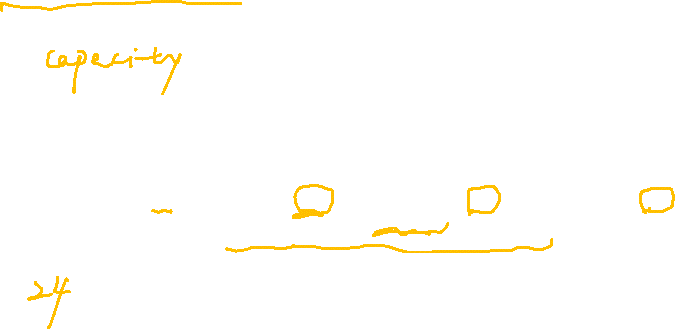 capacity
24